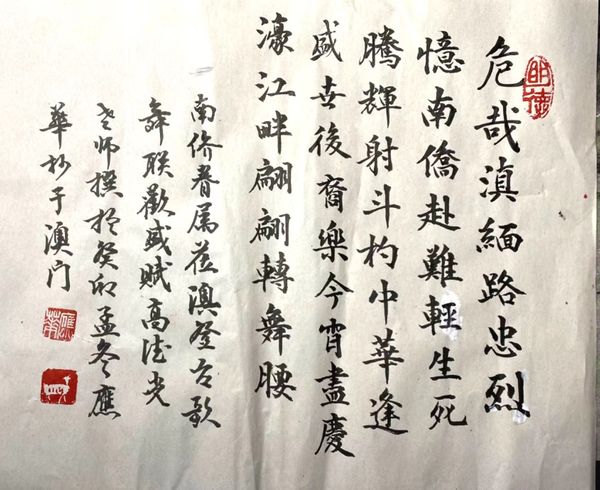 明德
危哉滇緬路忠烈
憶南僑赴難輕生死
騰輝射斗杓中華逢
盛世後裔樂今宵盡慶
濠江畔翩翩轉舞腰
南侨眷属莅澳登台歌
舞联歡感赋高德光
老师撰於癸卯孟冬應
華抄于澳门